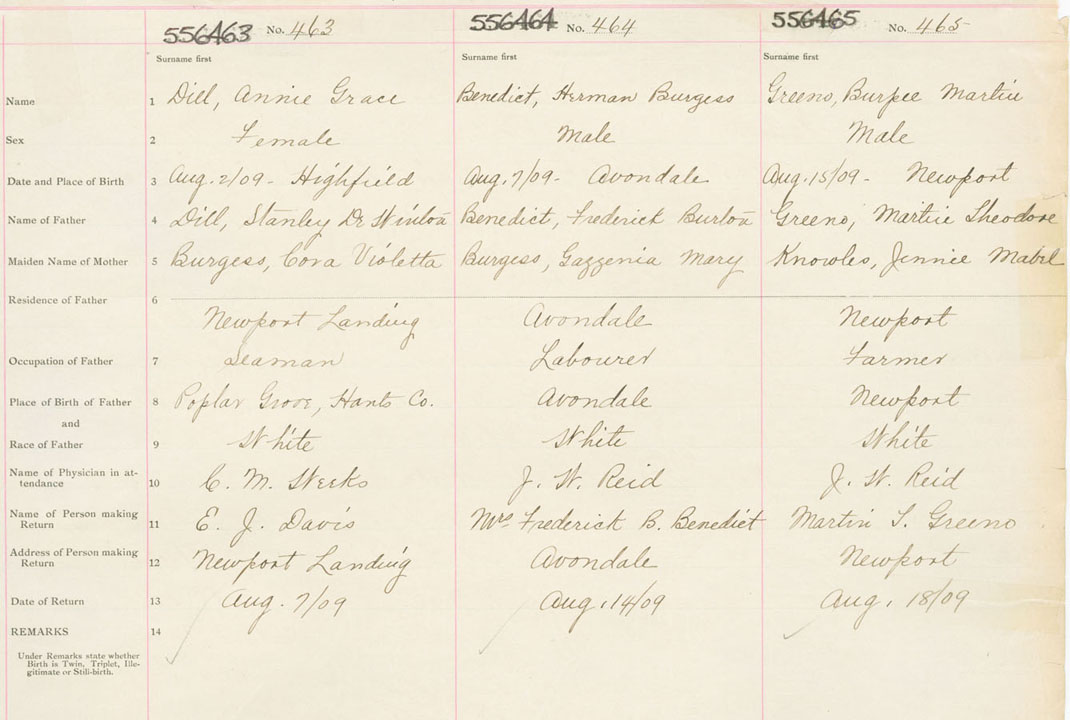 556463 No. 463 556464 No. 464 556465 No. 465
Surname first Surname first Surname first
Name 1 Dill, Annie Grace Benedict, Herman Burgess Greeno, Burpee Martin
Sex 2 Female Male Male
Date and Place of Birth 3 Aug. 2/09 - Highfield Aug. 7/09 - Avondale Aug. 15/09 - Newport
Name of Father 4 Dill, Stanley De Winton Benedict, Frederick Burton Greeno, Martin Theodore
Maiden Name of Mother 5 Burgess, Cora Violetta Burgess, Gazzenia Mary Knowles, Jennie Mabel
Residence of Father 6
Newport Landing Avondale Newport
Occupation of Father 7 Seaman Labourer Farmer
Place of Birth of Father 8 Poplar Grove, Hants Co. Avondale Newport
and
Race of Father 9 White White White
Name of Physician in at-
tendance 10 C. M. Weeks J. W. Reid J. W. Reid
Name of Person making
Return 11 E. J. Davis Mrs Frederick B. Benedict Martin T. Greeno
Address of Person making
Return 12 Newport Landing Avondale Newport
Date of Return 13 Aug. 7/09 Aug. 14/09 Aug. 18/09
REMARKS 14
Under Remarks state whether
Birth is Twin, Triplet, Ille-
gitimate or Still-birth.